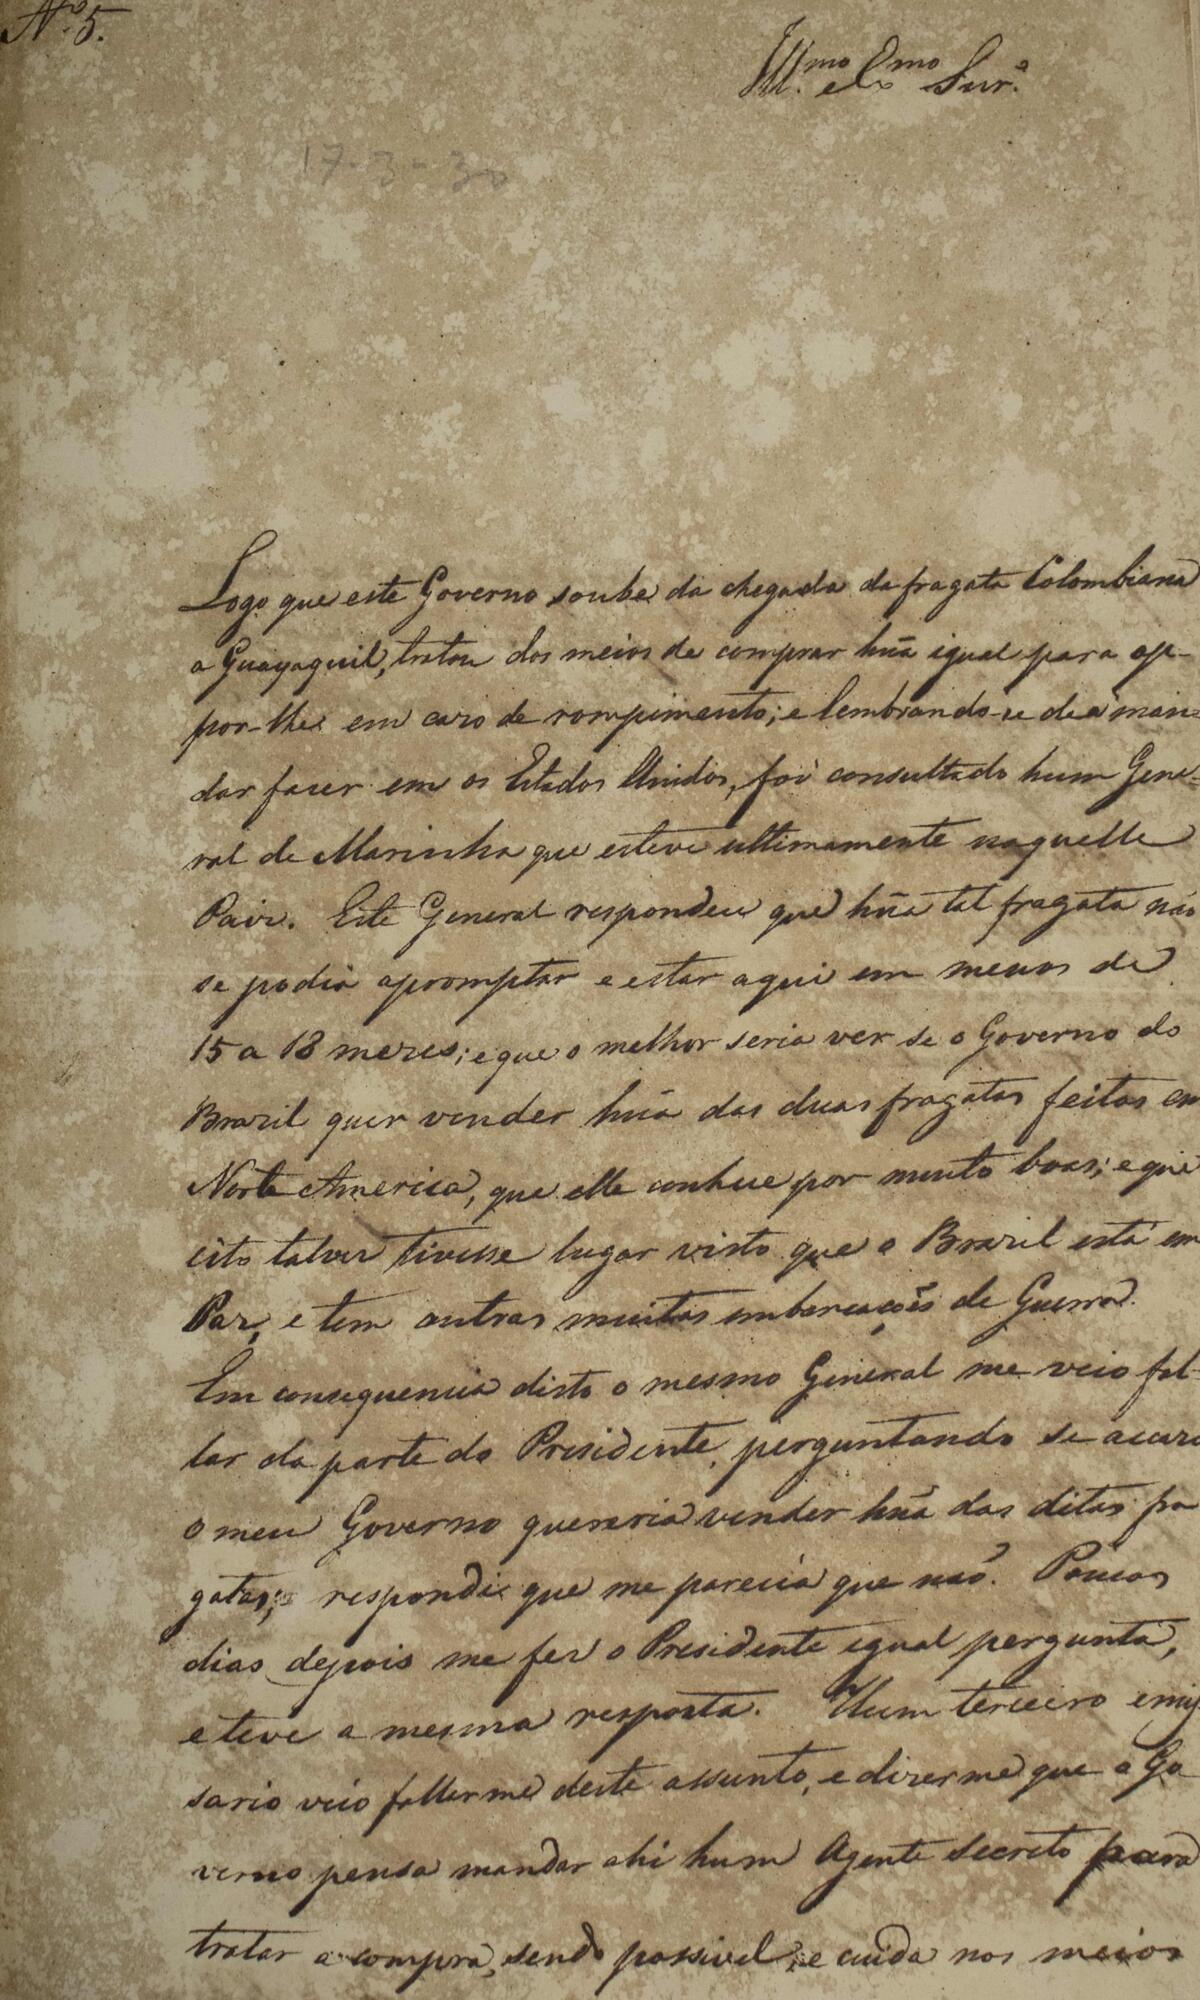 Nº 5.
Ill.mo e Ex.mo Snr.
17-3-30
Logo que este Governo soube da chegada da fragata Colombiana
a Guayaquil, tratou dos meios de comprar hũa igual para op-
por-lhe em cazo de rompimento; e lembrando-se de a man-
dar fazer em os Estados Unidos, foi consultado hum Gene-
ral de Marinha que esteve ultimamente naquelle
Paiz. Este General respondeu que hũa tal fragata não
se podia apromptar e estar aqui em menos de
15 a 18 mezes; e que o melhor seria ver se o Governo do
Brazil quer vender hũa das duas fragatas feitas em
Norte America, que elle conhece por muito boas; e que
isto talvez tivesse lugar visto que o Brazil está em
Paz, e tem outras muitas embarcações de Guerra.
Em consequencia disto o mesmo General me veio fal-
lar da parte do Presidente, perguntando se acazo
o meu Governo quereria vender hũa das ditas fra
gatas; respondi que me parecia que não. Poucos
dias depois me fez o Presidente igual pergunta,
e teve a mesma resposta. Hum terceiro emis
sario veio fallarme deste assunto, e dizerme que o Go
verno pensa mandar ahi hum Agente secreto para
tratar a compra, sendo possivel, e cuida nos meios